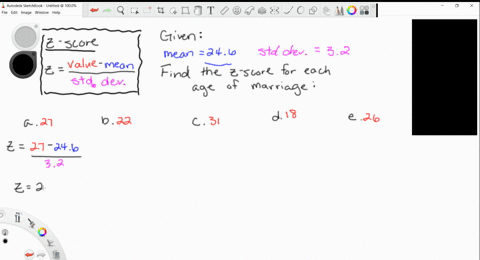 Autodesk SketchBook - Untitled @ 100.0%
File Edit Image Window Help
z-score
z = value-mean
std. dev.
Given:
mean = 24.6 std dev. = 3.2
Find the z-score for each
age of marriage:
a. 27 b. 22 c. 31 d. 18 e. 26
z = 27-24.6
3.2
z = 2